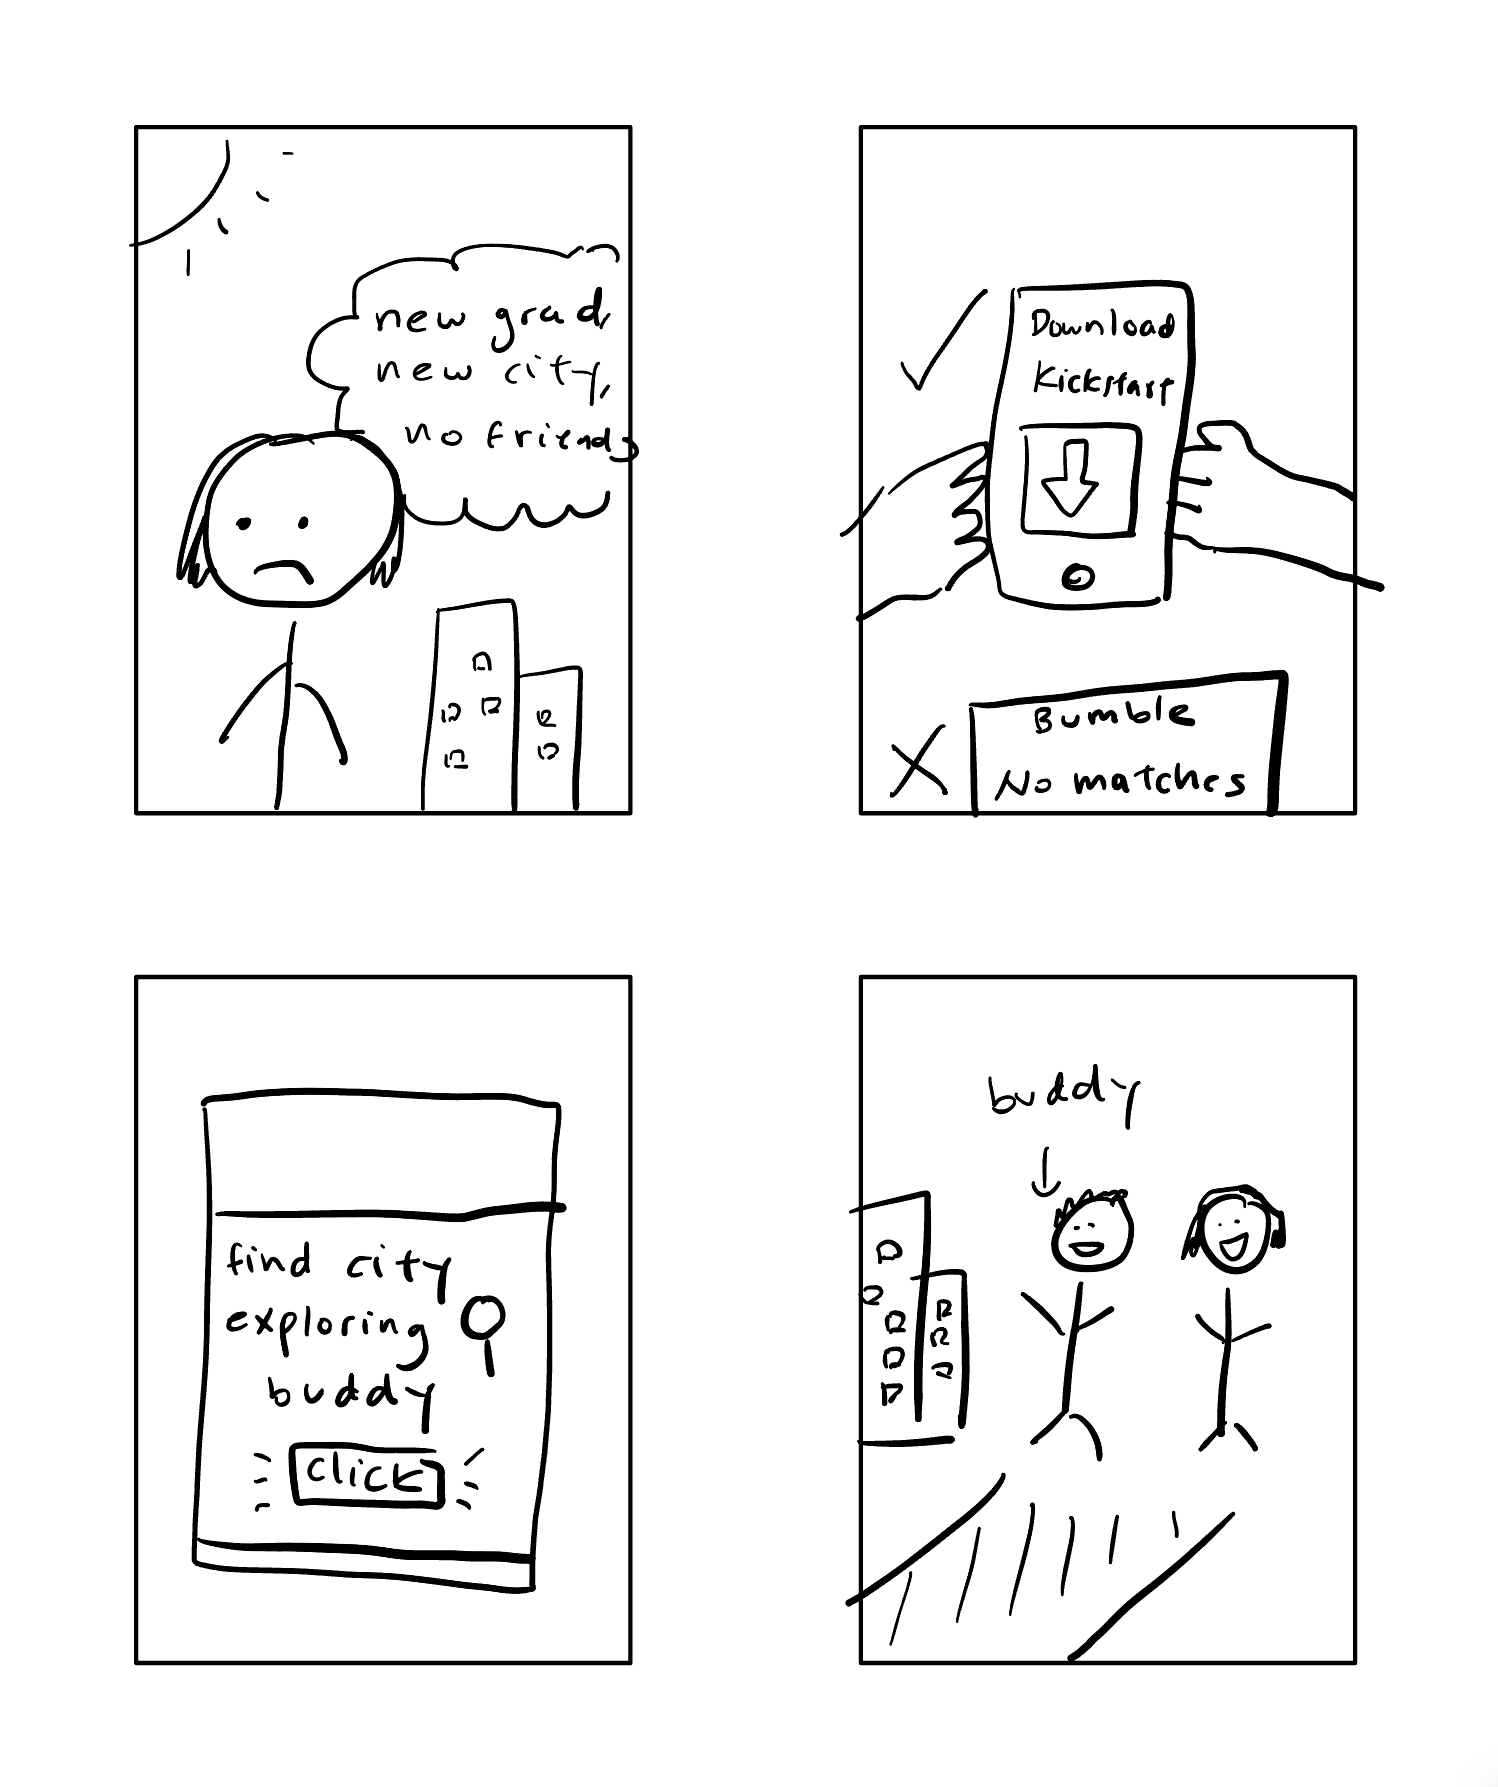 new grad,
new city,
no friends
Download
Kickstart
Bumble
No matches
find city
exploring
buddy
click
buddy